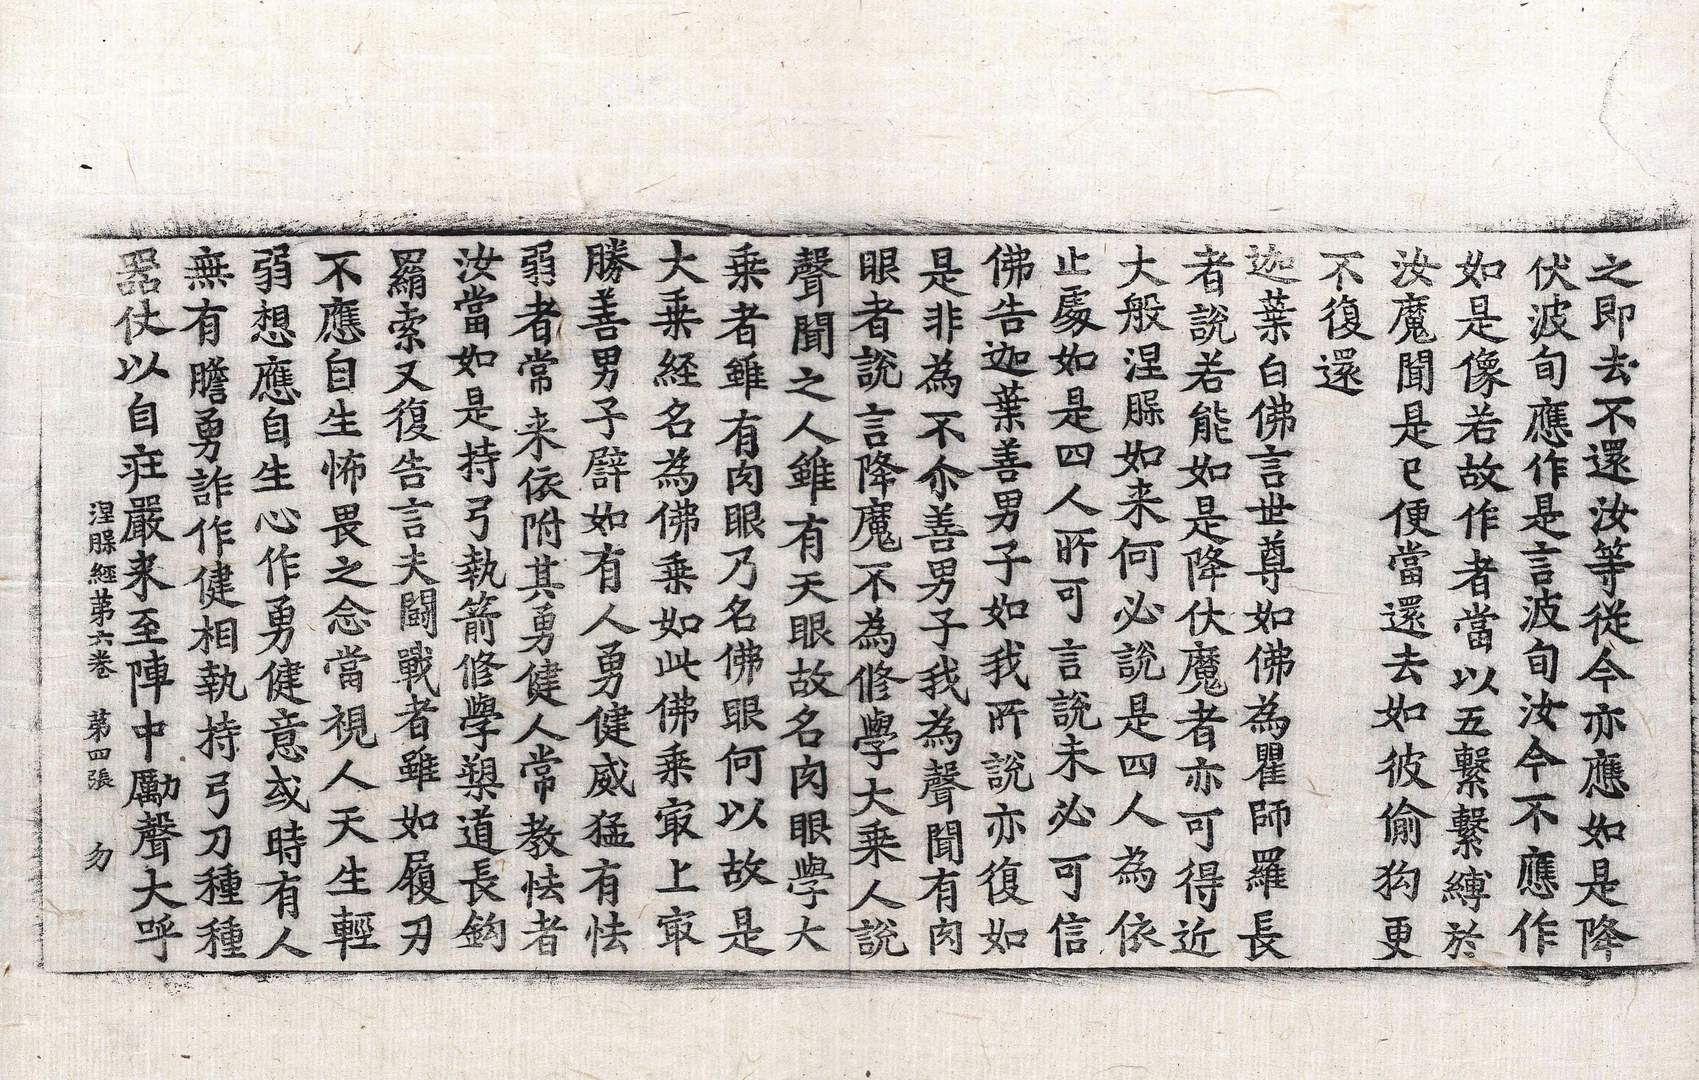 之即去不還汝等從今亦應如是降
伏波旬應作是言波旬汝今不應作
如是像若故作者當以五繫繫縛於
汝魔聞是已便當還去如彼偷狗更
不復還
迦葉白佛言世尊如佛為瞿師羅長
者說若能如是降伏魔者亦可得近
大般涅槃如来何必說是四人為依
止處如是四人所可言說未必可信
佛告迦葉善男子如我所說亦復如
是非為不尒善男子我為聲聞有肉
眼者說言降魔不為修學大乗人說
聲聞之人雖有天眼故名肉眼學大
乗者雖有肉眼乃名佛眼何以故是
大乗経名為佛乗如此佛乗㝡上㝡
勝善男子譬如有人勇健威猛有怯
弱者常来依附其勇健人常教怯者
汝當如是持弓執箭修學槊道長鈎
羂索又復告言夫鬪戰者雖如履刃
不應自生怖畏之念當視人天生輕
弱想應自生心作勇健意或時有人
無有膽勇詐作健相執持弓刀種種
器仗以自莊嚴来至陣中勵聲大呼
涅槃經第六卷 第四張 勿